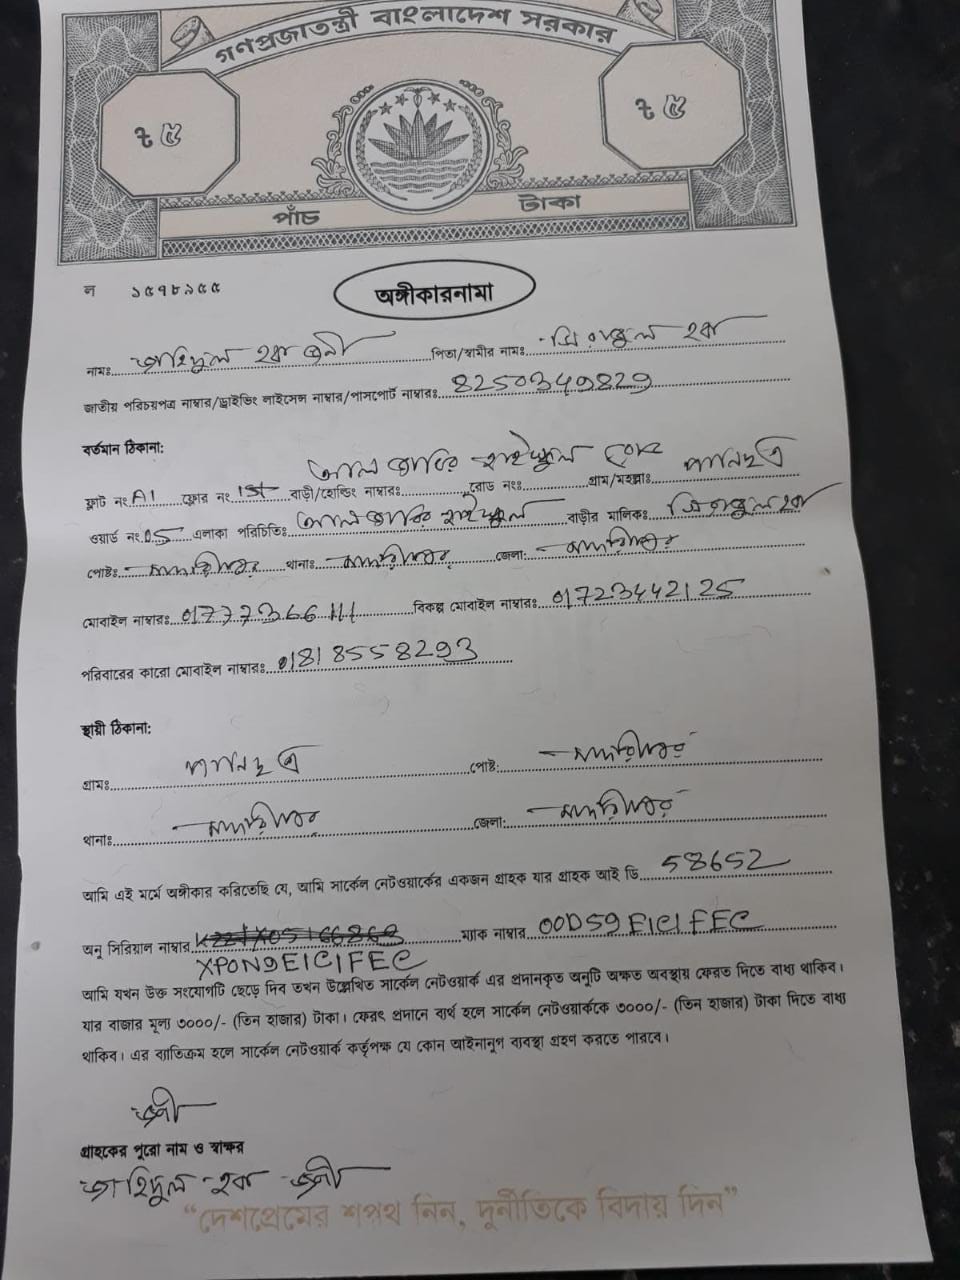 গণপ্রজাতন্ত্রী বাংলাদেশ সরকার
৳ ৫ ৳ ৫
পাঁচ টাকা
ন ১৫৭৮৯৫৫
অঙ্গীকারনামা
নামঃ হক পিতা/স্বামীর নামঃ হক
জাতীয় পরিচয়পত্র নাম্বার/ড্রাইভিং লাইসেন্স নাম্বার/পাসপোর্ট নাম্বারঃ 8250349829
বর্তমান ঠিকানা:
ফ্লাট নং A1 ফ্লোর নং 1st বাড়ী/হোল্ডিং নাম্বারঃ আল জাবির হাইস্কুল রোড রোড নং গ্রাম/মহল্লাঃ
ওয়ার্ড নং 05 এলাকা পরিচিতিঃ আল জাবির হাইস্কুল বাড়ীর মালিকঃ হক
পোষ্টঃ মাদারীপুর থানাঃ মাদারীপুর জেলা: মাদারীপুর
মোবাইল নাম্বারঃ 01777366111 বিকল্প মোবাইল নাম্বারঃ 01723442125
পরিবারের কারো মোবাইল নাম্বারঃ 01818558293
স্থায়ী ঠিকানা:
গ্রামঃ পোষ্ট: মাদারীপুর
থানাঃ মাদারীপুর জেলা: মাদারীপুর
আমি এই মর্মে অঙ্গীকার করিতেছি যে, আমি সার্কেল নেটওয়ার্কের একজন গ্রাহক যার গ্রাহক আই ডি 58652
অনু সিরিয়াল নাম্বার ম্যাক নাম্বার 00D59E1C1FEC
XPON9E1C1FEC
আমি যখন উক্ত সংযোগটি ছেড়ে দিব তখন উল্লেখিত সার্কেল নেটওয়ার্ক এর প্রদানকৃত অনুটি অক্ষত অবস্থায় ফেরত দিতে বাধ্য থাকিব।
যার বাজার মূল্য ৩০০০/- (তিন হাজার) টাকা। ফেরৎ প্রদানে ব্যর্থ হলে সার্কেল নেটওয়ার্ককে ৩০০০/- (তিন হাজার) টাকা দিতে বাধ্য
থাকিব। এর ব্যতিক্রম হলে সার্কেল নেটওয়ার্ক কর্তৃপক্ষ যে কোন আইনানুগ ব্যবস্থা গ্রহণ করতে পারবে।
গ্রাহকের পুরো নাম ও স্বাক্ষর
হক
“দেশপ্রেমের শপথ নিন, দুর্নীতিকে বিদায় দিন”